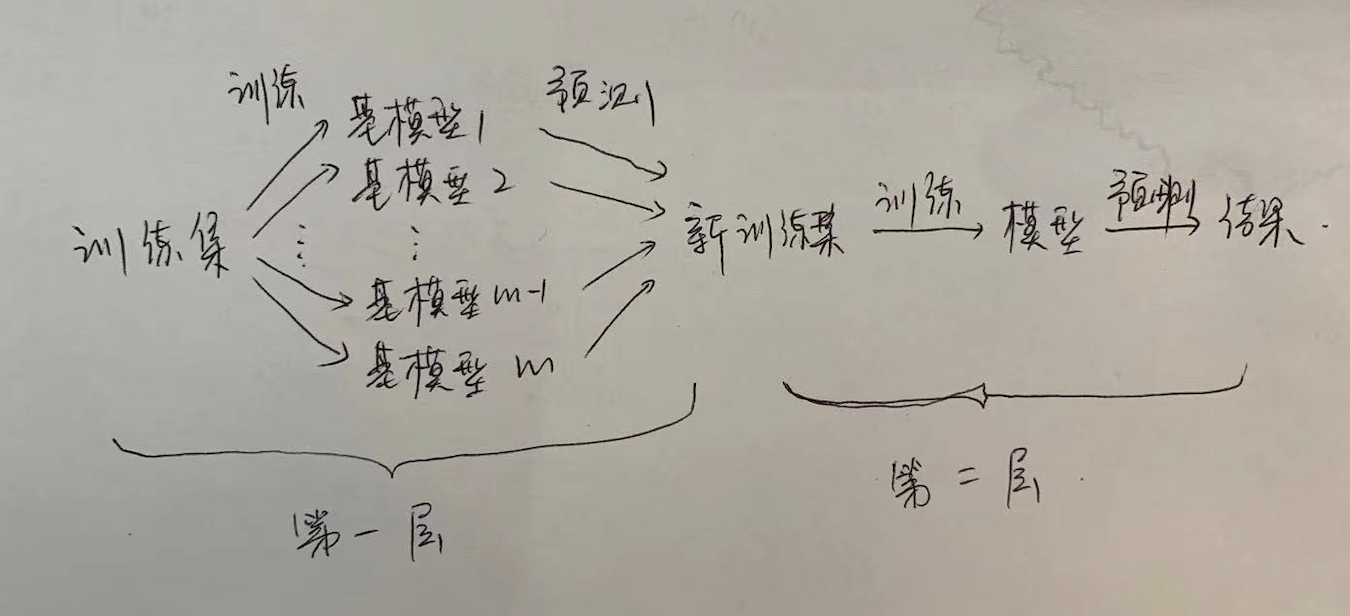 训练
预测
基模型1
基模型2
训练集
新训练集
训练
模型
预测
结果.
基模型m-1
基模型m
第一层
第二层.